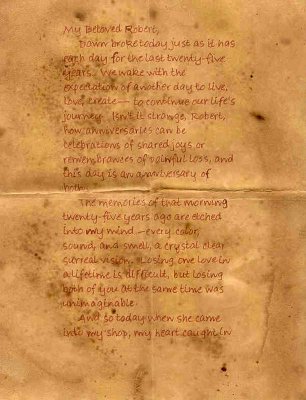 My Beloved Robert,
Dawn broke today just as it has
each day for the last twenty-five
years. We wake with the
expectation of another day to live,
love, create — to continue our life's
journey. Isn't it strange, Robert,
how anniversaries can be
celebrations of shared joys or
remembrances of painful loss, and
this day is an anniversary of
both.
The memories of that morning
twenty-five years ago are etched
into my mind — every color,
sound, and smell, a crystal clear
surreal vision. Losing one love in
a lifetime is difficult, but losing
both of you at the same time was
unimaginable.
And so today when she came
into my shop, my heart caught in